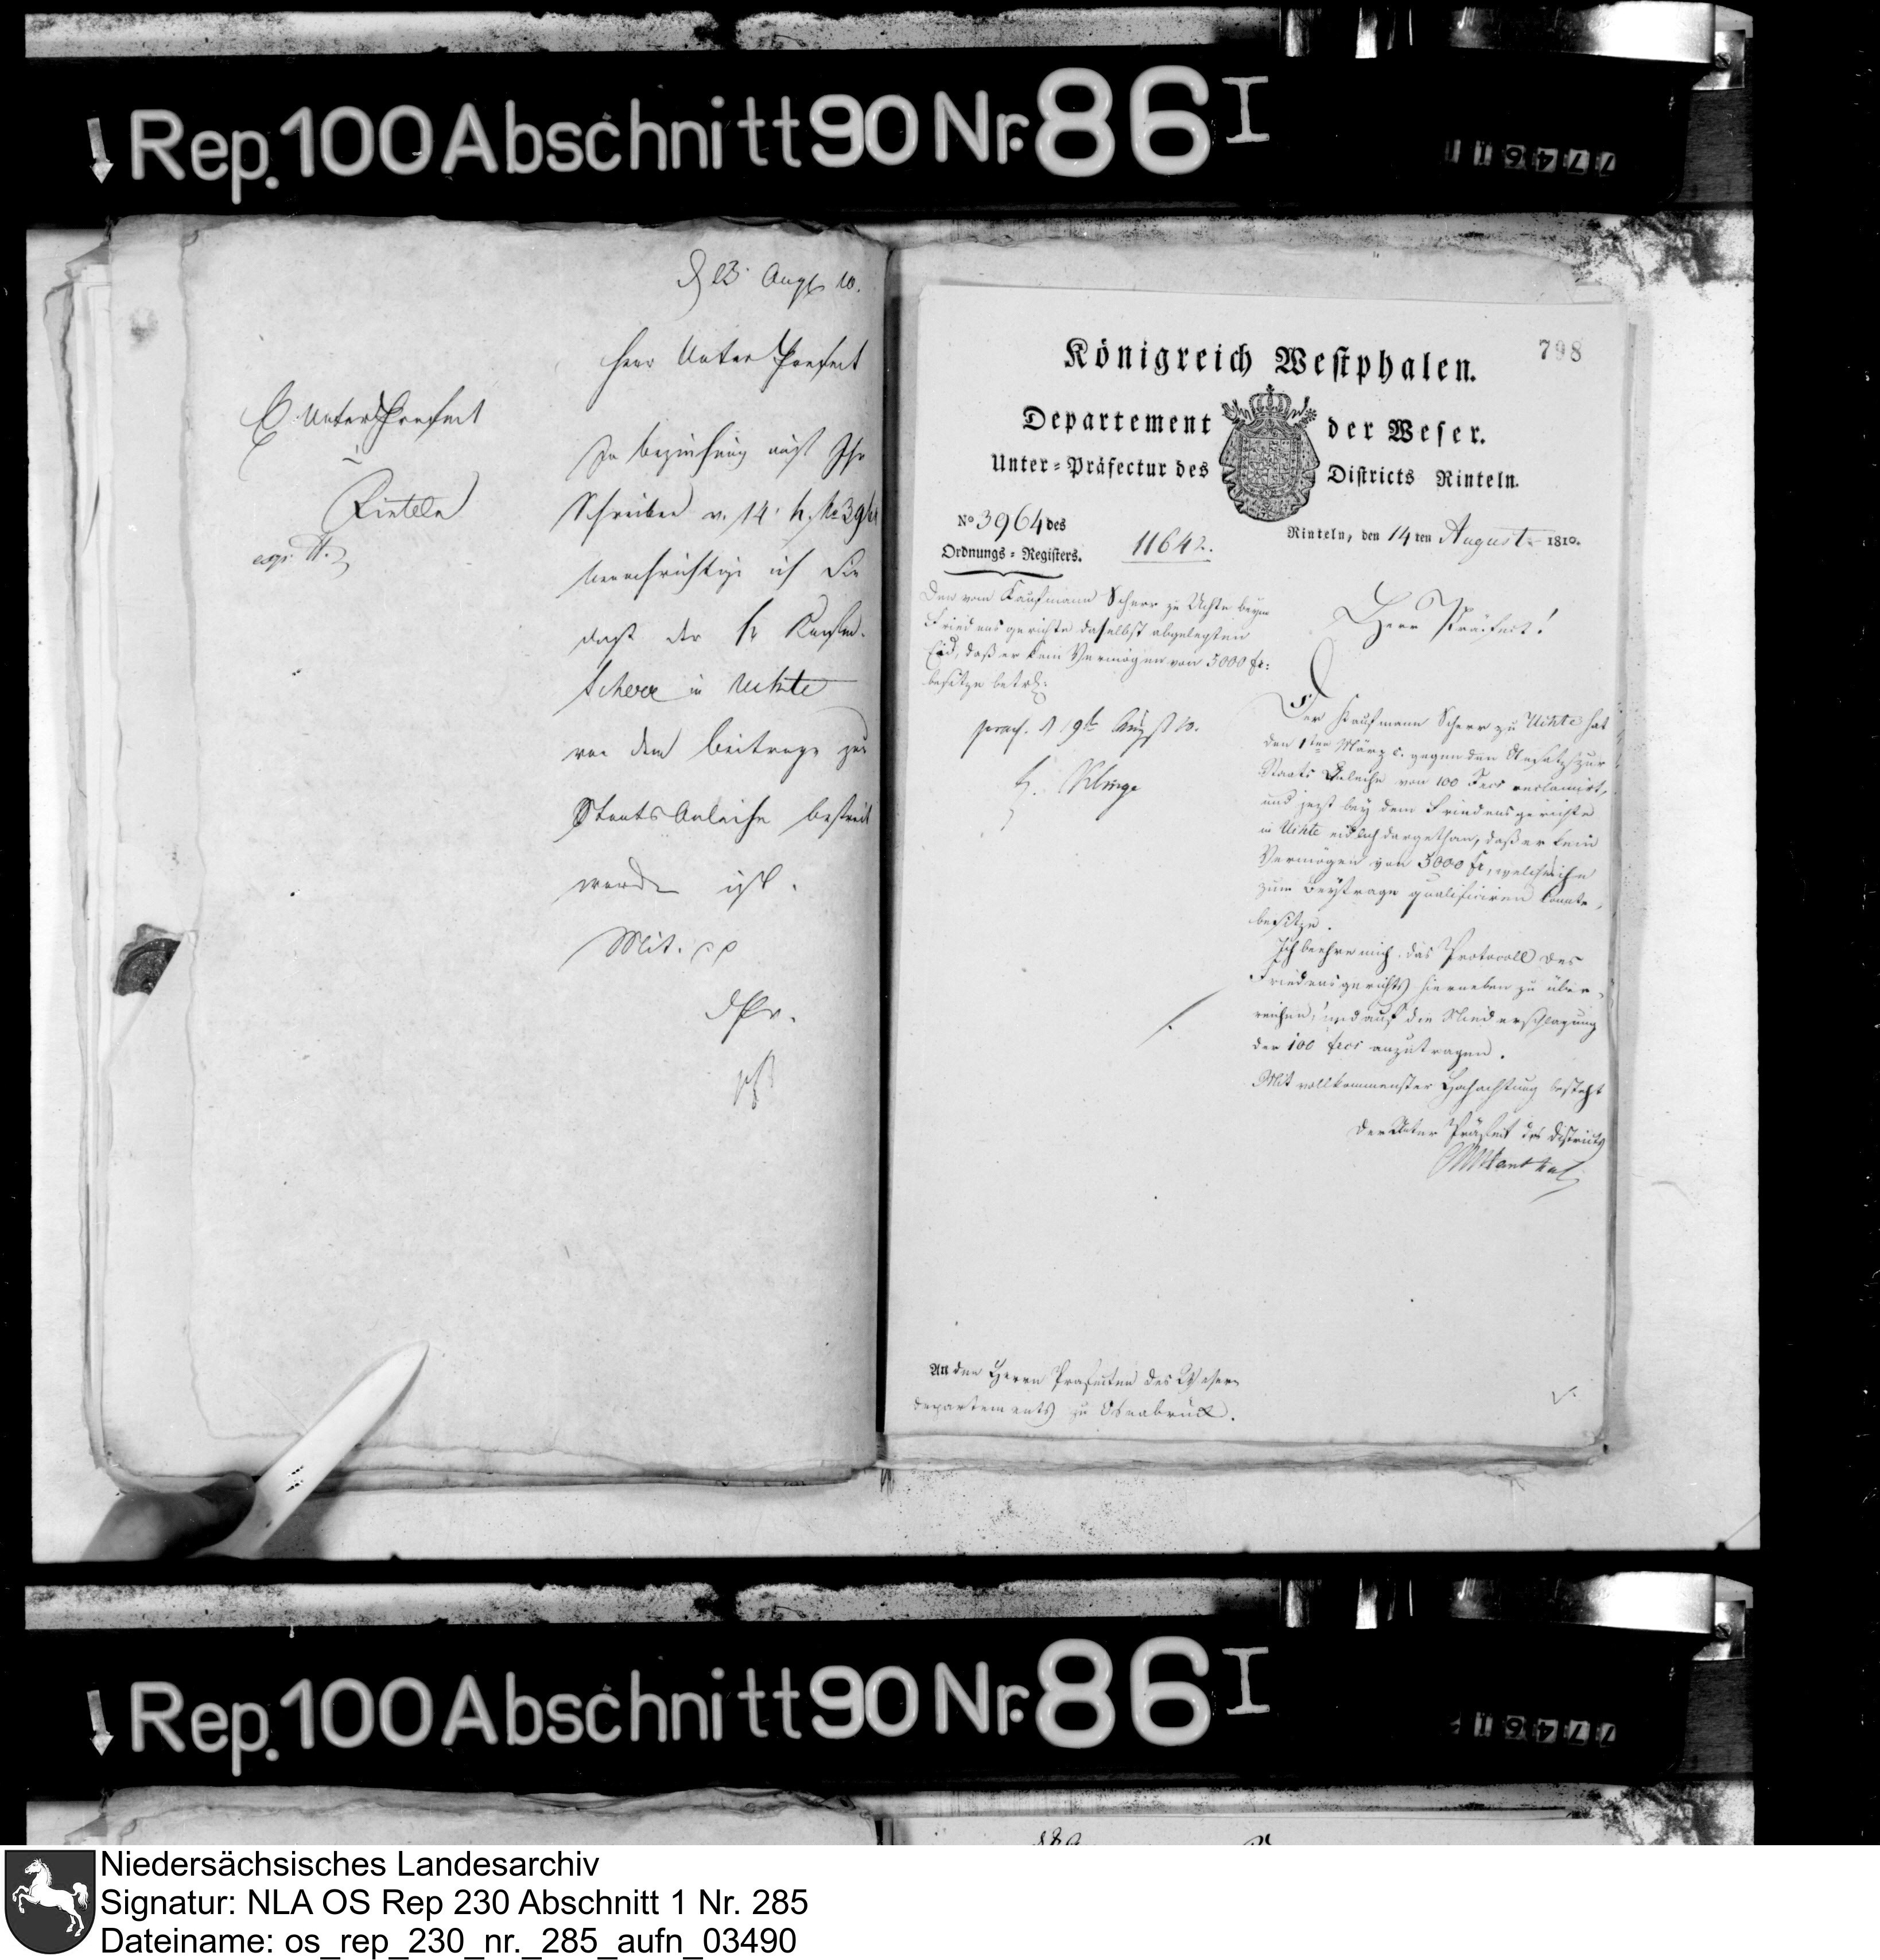 Rep. 100 Abschnitt 90 Nr. 86 I
77461
d 23. Augst 10.
Herr Unter Praefect
H Unter Praefect
Rinteln
In Beziehung auf Ihr
Schreiben v. 14. h. No 3964
benachrichtige ich Sie
daß der H Kaufm.
Scherr in Uchte
von dem Beitrage zur
Staats Anleihe befreit
worden ist.
Mit. pp
dPr.
798
Königreich Westphalen.
Departement der Weser.
Unter-Präfectur des Districts Rinteln.
No 3964 des
Ordnungs-Registers.
11642.
Rinteln, den 14ten August 1810.
Den vom Kaufmann Scherr zu Uchte beym
Friedensgerichte daselbst abgelegten
Eid, daß er kein Vermögen von 5000 fr:
besitze betr.
praes. d 19ten Augst 10.
Herr Präfect!
Der Kaufmann Scherr zu Uchte hat
den 1ten März c. gegen den Ansatz zur
Staats Anleihe von 100 Frcs reclamirt,
und jezt bey dem Friedensgerichte
in Uchte eidlich dargethan, daß er kein
Vermögen von 5000 fr, welches ihn
zum Beytrage qualificiren konnte,
besitze.
Ich beehre mich das Protocoll des
Friedensgerichts hierneben zu über-
reichen, und auf die Niederschlagung
der 100 frcs anzutragen.
Mit vollkommenster Hochachtung besteht
Der Unter Präfect des Districts
An den Herrn Präfecten des Weser-
departements zu Osnabrück.
Rep. 100 Abschnitt 90 Nr. 86 I
77461
Niedersächsisches Landesarchiv
Signatur: NLA OS Rep 230 Abschnitt 1 Nr. 285
Dateiname: os_rep_230_nr._285_aufn_03490